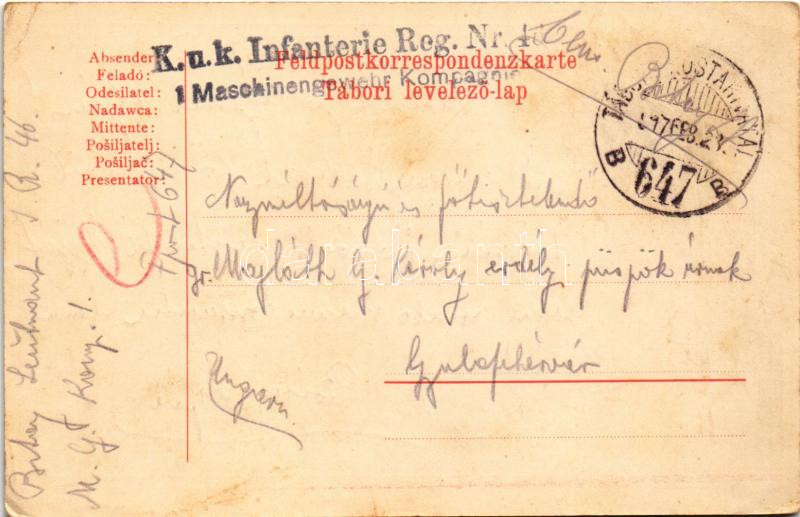 K.u.k. Infanterie Reg. Nr. 46
1 Maschinengewehr Kompagnie
Feldpostkorrespondenzkarte
Tábori levelező-lap
Absender:
Feladó:
Odesilatel:
Nadawca:
Mittente:
Pošiljatelj:
Pošiljač:
Presentator:
TÁBORI POSTAHIVATAL
917 FEB. 21.
B 647 B
Nagyméltóságú és főtisztelendő
gr. Majláth G. Károly erdély püspök úrnak
Gyulafehérvár
Ungarn
Leutnant I. R. 46.
M. G. Komp. 1.
647
darabanth